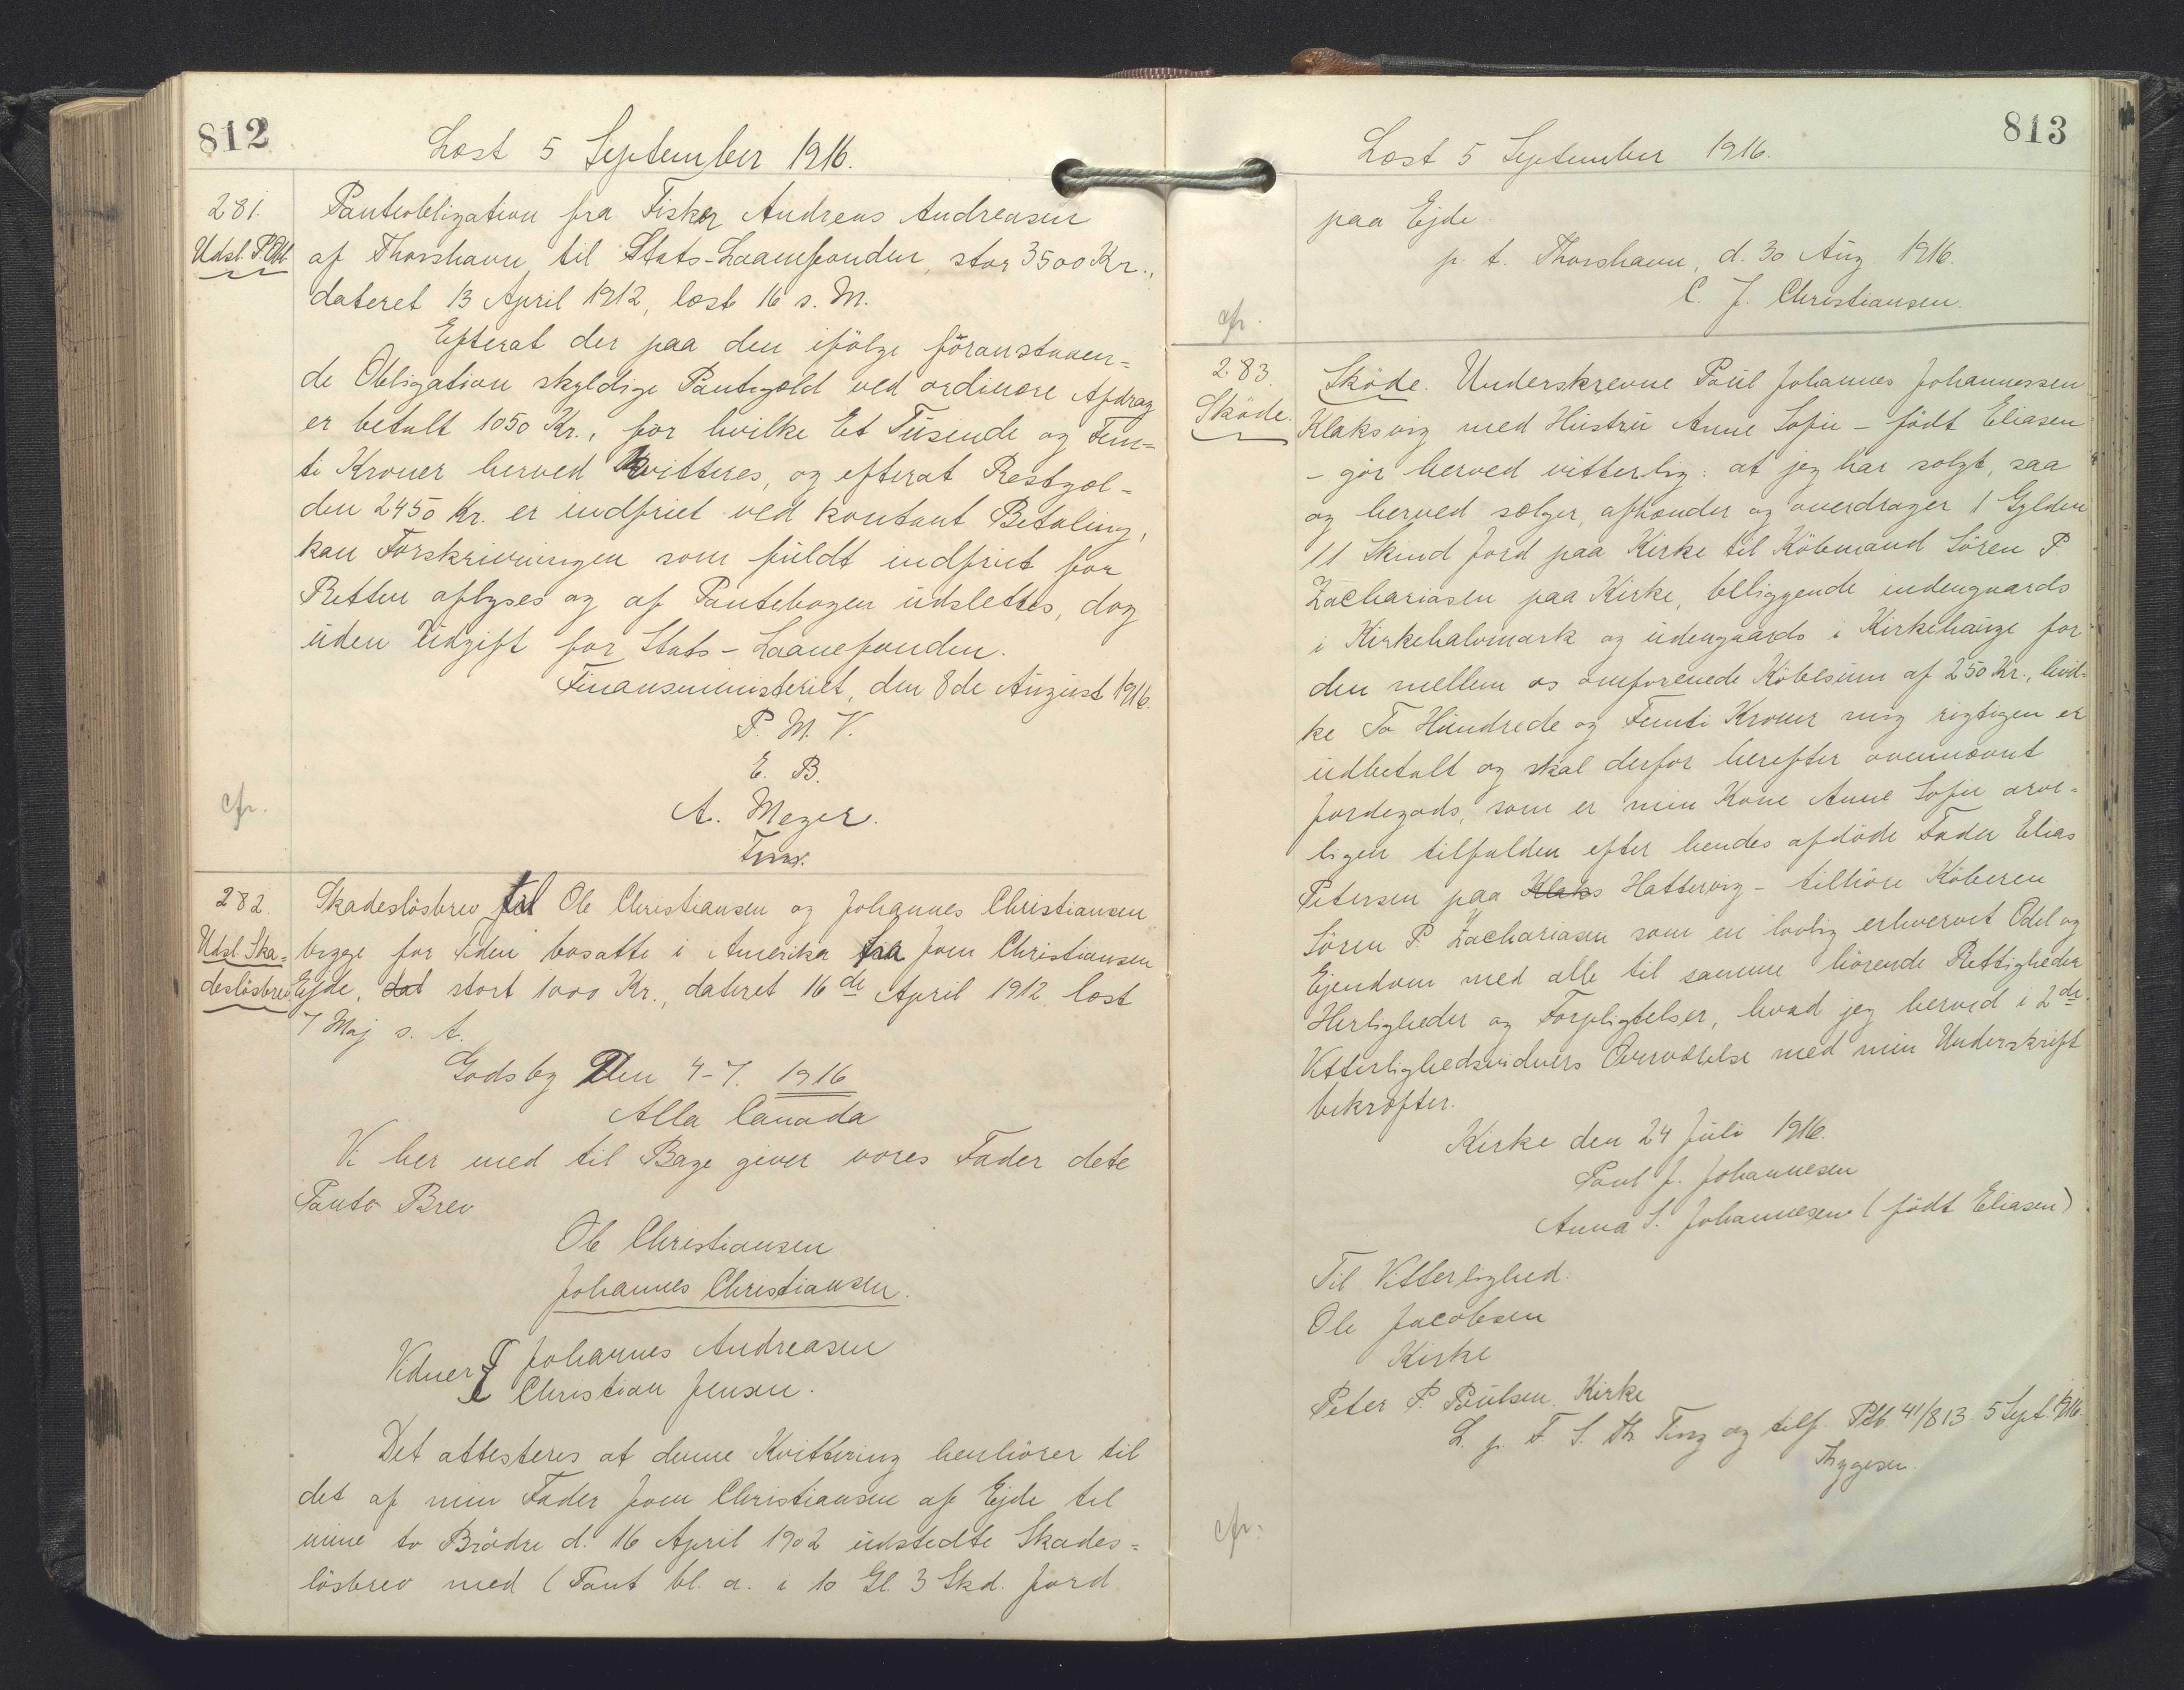 812
Læst 5 September 1916.
281.
Udsl. P. Obl.
Panteobligation fra Fisker Andreas Andreasen
af Thorshavn til Stats-Laanefonden, stor 3500 Kr.,
dateret 13 April 1912, læst 16 s. M.
Efterat der paa den ifölge foranstaaen=
de Obligation skyldige Pantegæld ved ordinære Afdrag
er betalt 1050 Kr., for hvilke Et Tusende og Fem=
ti Kroner herved kvitteres, og efterat Restgæl=
den 2450 Kr. er indfriet ved kontant Betaling,
kan Forskrivningen som fuldt indfriet for
Retten aflyses og af Pantebogen udslettes, dog
uden Udgift for Stats-Laanefonden.
Finansministeriet, den 8de August 1916.
P. M. V.
E. B.
A. Meyer.
Fm.
cfr.
282.
Udsl. Ska=
deslösbrev
Skadeslösbrev til Ole Christiansen og Johannes Christiansen
begge for Tiden bosatte i Amerika fra Joen Christiansen
Ejde, dat stort 1000 Kr., dateret 16de April 1912 læst
7 Maj s. A.
Gods by Den 4-7. 1916
Alla Canada
Vi her med til Bage giver vores Fader dete
Panto Brev
Ole Christiansen
Johannes Christiansen.
Vidner { Johannes Andreasen
Christian Jensen.
Det attesteres at denne Kvittering henhörer til
det af min Fader Joen Christiansen af Ejde til
mine to Brödre d. 16 April 1902 udstedte Skades=
lösbrev med (Pant bl. a. i 10 Gl. 3 Skd. Jord
813
Læst 5 September 1916.
paa Ejde
p. t. Thorshavn, d. 30 Aug 1916.
C. J. Christiansen.
cfr.
283.
Sköde.
Sköde. Underskrevne Poul Johannes Johannessen
Klaksvig med Hustru Anne Sofie - födt Eliasen
- gör herved vitterlig: at jeg har solgt, saa
og herved sælger, afhænder og overdrager 1 Gylden
11 Skind Jord paa Kirke til Köbmand Sören P.
Zachariasen paa Kirke, beliggende indengaards
i Kirkehalvmark og udengaards i Kirkehauge for
den mellem os omforenede Köbesum af 250 Kr., hvil=
ke To Hundrede og Femti Kroner mig rigtigen er
udbetalt og skal derfor herefter ovennævnt
Jordegods, som er min Kone Anne Sofie arve=
ligen tilfalden efter hendes afdöde Fader Elias
Petersen paa Klaks Hattervig - tilhöre Köberen
Sören P. Zachariasen som en lovlig erhvervet Odel og
Ejendom med alle til samme hörende Rettigheder
Herligheder og Forpligtelser, hvad jeg herved i 2de
Vitterlighedsvidners Overværelse med min Underskrift
bekræfter.
Kirke den 24 Juli 1916.
Poul J. Johannesen
Anna S. Johannesen (födt Eliasen)
Til Vitterlighed:
Ole Jacobsen
Kirke
Peter P. Poulsen. Kirke
L. p. F. S. Th. Ting og tilf. Ptb. 41/813 5 Sept. 1916.
Thygesen.
cfr.